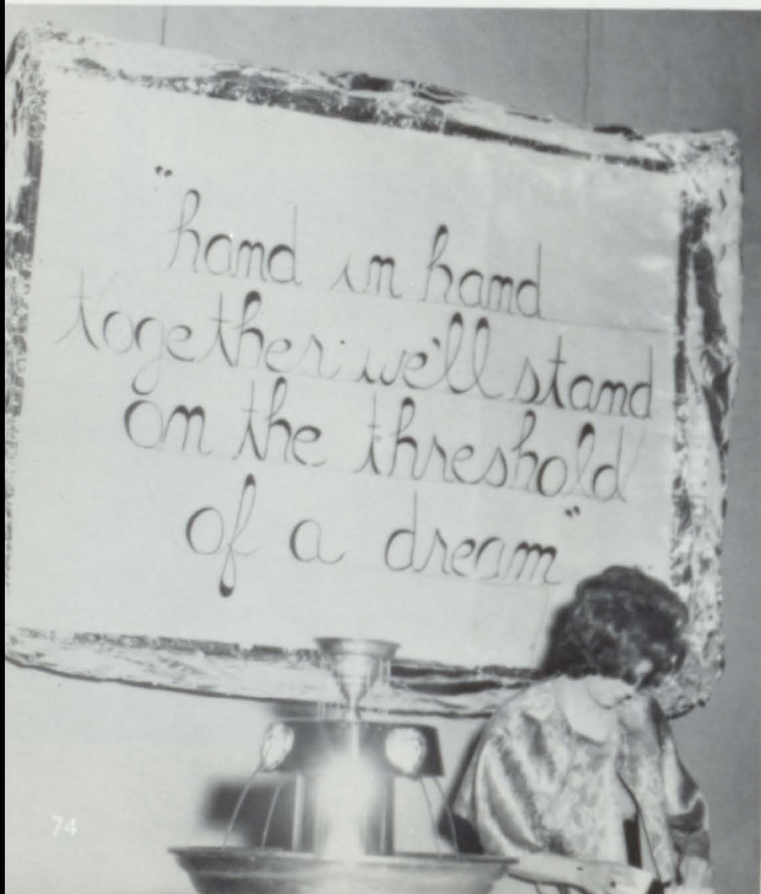 "hand in hand
together we'll stand
on the threshold
of a dream"
74